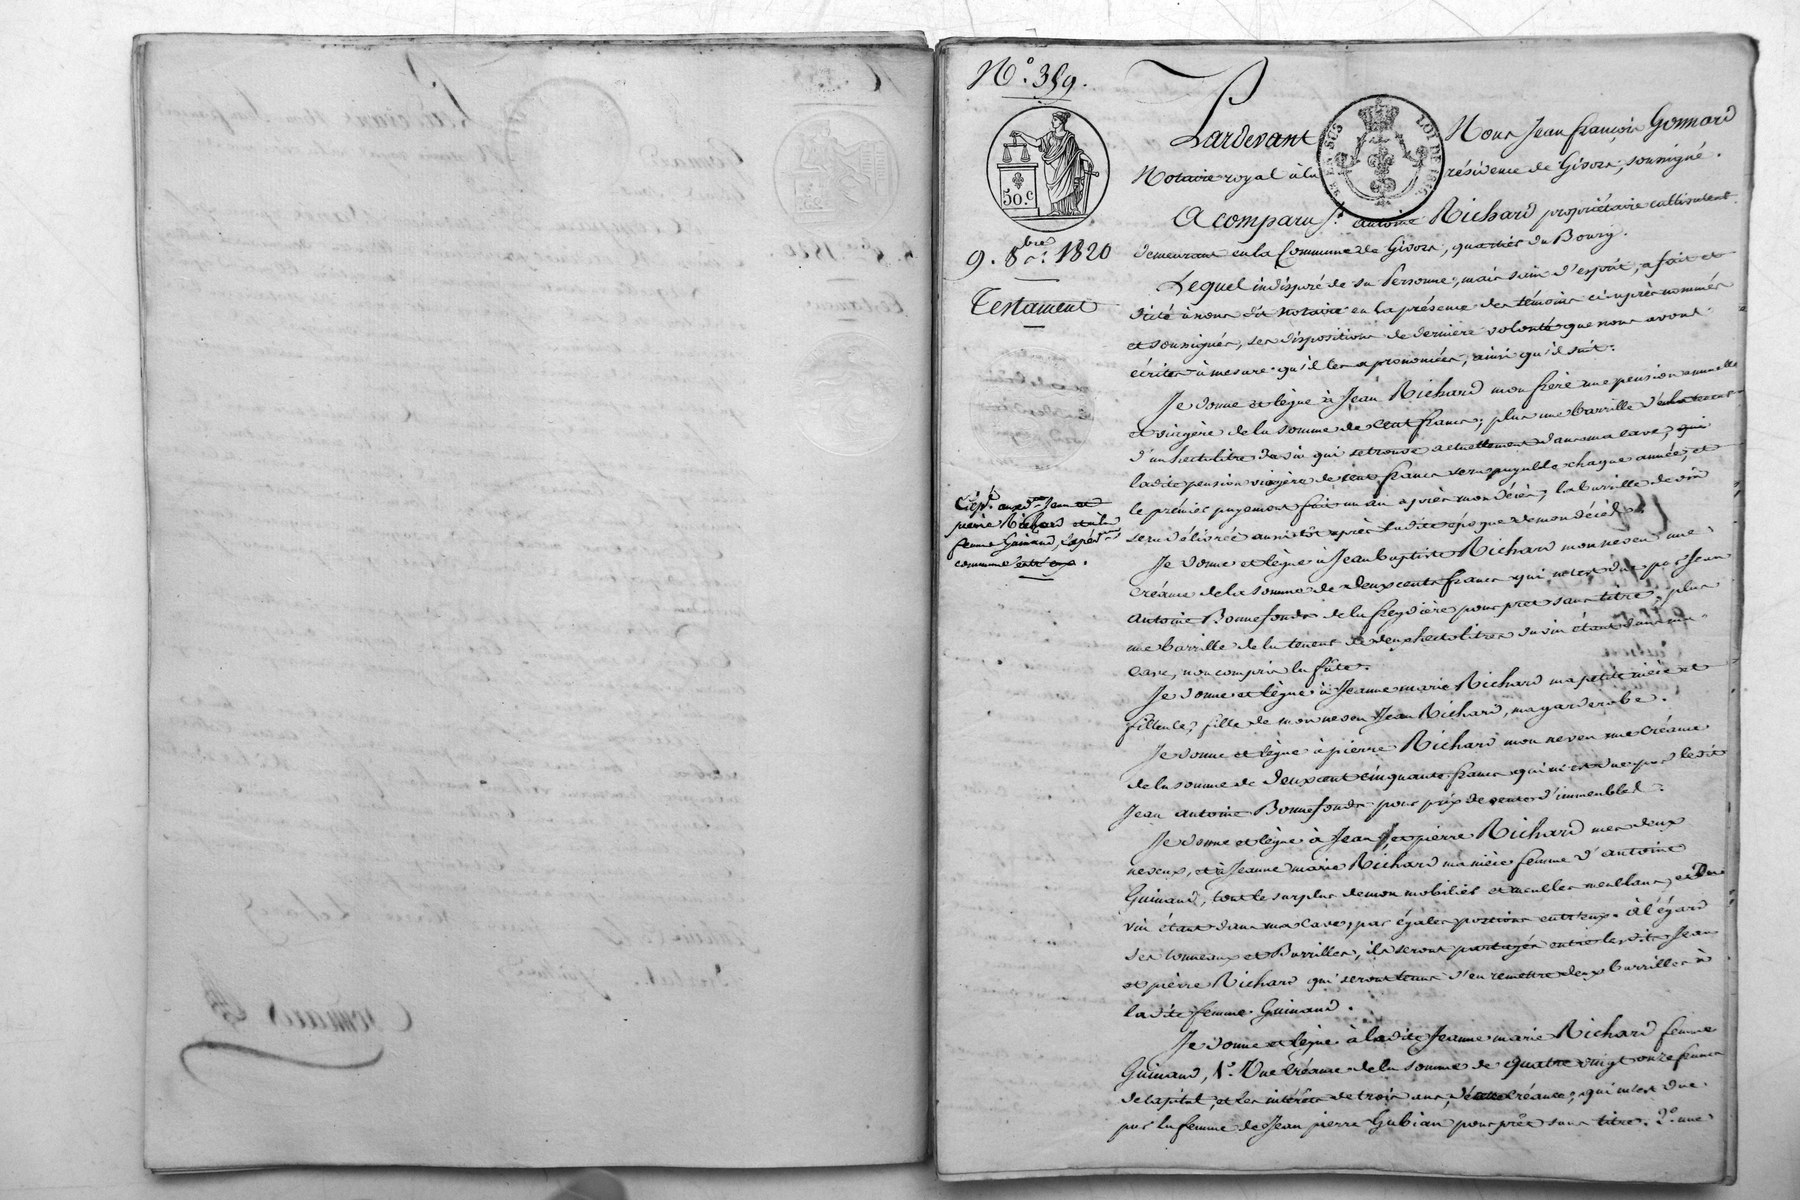 N.° 359.
50.c
9. 8bre 1820
Testament
Expd. aux d. Jean et
pierre Richard et à la
femme Guinand, expédon
commune entre eux.
Pardevant Nous Jean françois Gonnard
Notaire royal à la résidence de Givors, soussigné.
A comparu sr. antoine Richard propriétaire cultivateur
demeurant en la Commune de Givors, quartier du Bourg.
Lequel indisposé de sa Personne, mais sain d'esprit, a fait et
dicté à nous dit notaire en la présence des témoins ci-après nommés
et soussignés, ses dispositions de dernière volonté que nous avons
écrites à mesure qu'il les a prononcées, ainsi qu'il suit.
Je donne et lègue à Jean Richard mon frère une pension annuelle
et viagère de la somme de Cent francs; plus une barrille de la tenue
d'un hectolitre de vin qui se trouve actuellement dans ma cave;
ladite pension viagère de cent francs sera payable chaque année, et
le premier payement fait un an après mon décès; la barrille de vin
sera délivrée aussitôt après ladite époque de mon décès.
Je donne et lègue à Jean baptiste Richard mon neveu une
Créance de la somme de deux cents francs qui m'est due par Jean
Antoine Bonnefonds de la freydière pour prêt sans titre; plus
une barrille de la tenue de deux hectolitres du vin étant dans ma
cave, non compris la fûte.
Je donne et lègue à Jeanne marie Richard ma petite nièce et
filleule, fille de mon neveu Jean Richard, ma garderobe.
Je donne et lègue à pierre Richard mon neveu une Créance
de la somme de deux cent cinquante francs qui m'est due par ledit
Jean antoine Bonnefonds pour prix de ventes d'immeubles.
Je donne et lègue à Jean et pierre Richard mes deux
neveux, et à Jeanne marie Richard ma nièce femme d'antoine
Guinand, tout le surplus de mon mobilier et meubles meublans, et du
vin étant dans ma cave, par égales portions entr'eux. à l'égard
des tonneaux et Barrilles, ils seront partagés entre lesdits Jean
et pierre Richard qui seront tenus d'en remettre deux barrilles à
ladite femme Guinand.
Je donne et lègue à ladite Jeanne marie Richard femme
Guinand, 1°. Une Créance de la somme de quatre vingt onze francs
de capital, et les intérêts de trois ans, de créance, qui m'est due
par la femme de Jean pierre Gubian pour prêt sans titre. 2°. une